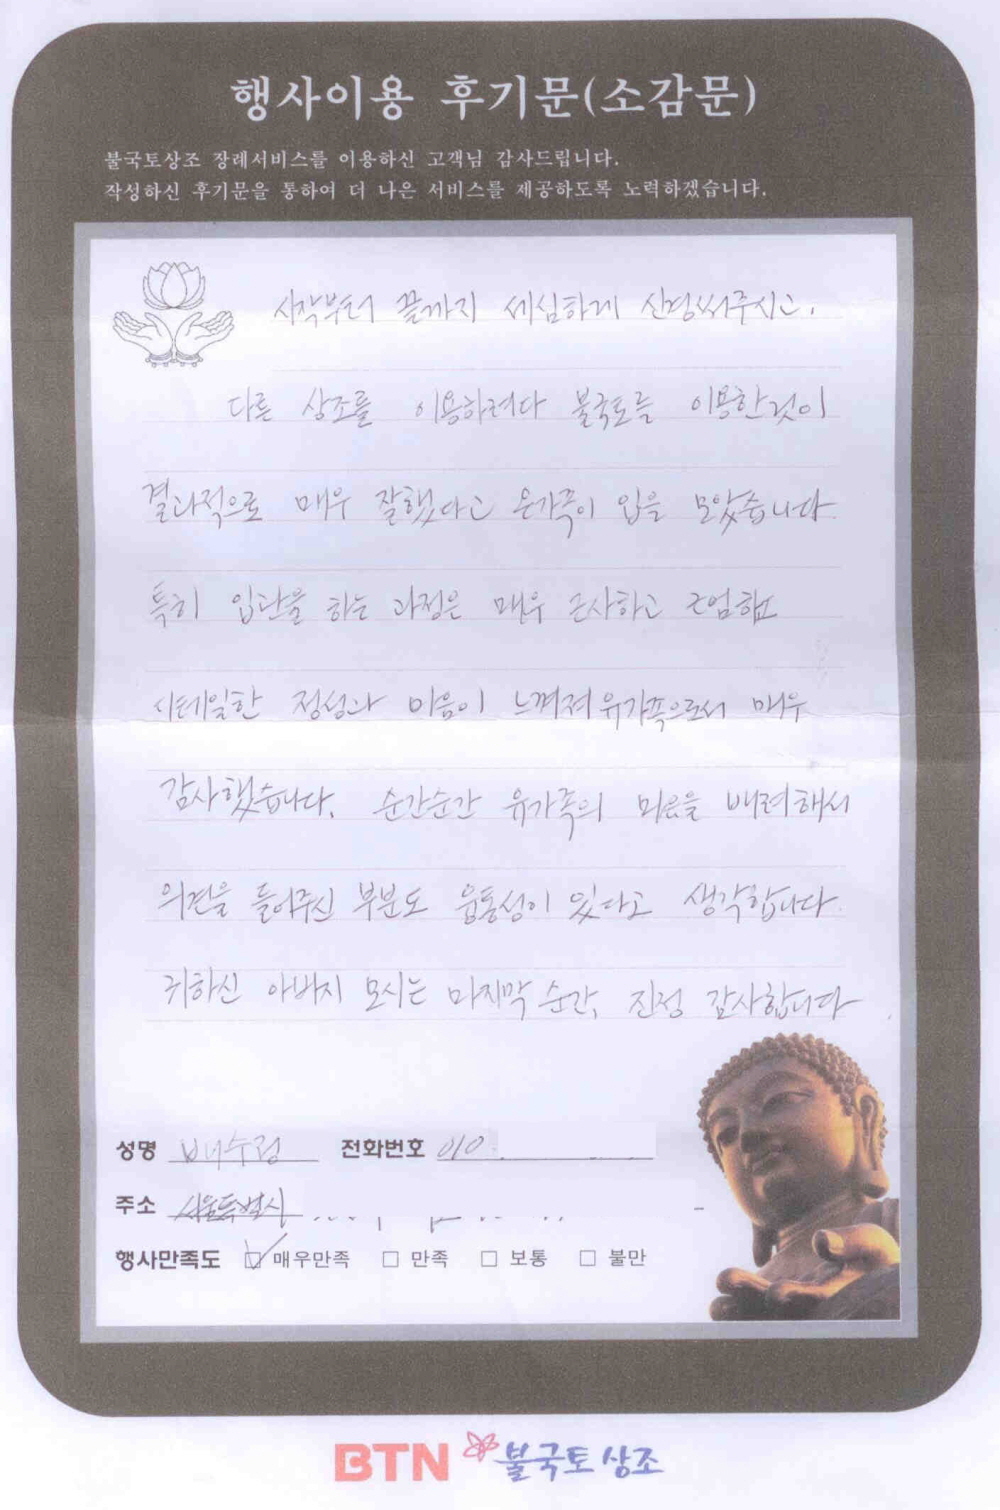 행사이용 후기문(소감문)
불국토상조 장례서비스를 이용하신 고객님 감사드립니다.
작성하신 후기문을 통하여 더 나은 서비스를 제공하도록 노력하겠습니다.
시작부터 끝까지 세심하게 신경써주시고.
다른 상조를 이용하려다 불국토를 이용한것이
결과적으로 매우 잘했다고 온가족이 입을 모았습니다.
특히 입관을 하는 과정은 매우 근사하고 근엄했고
시테일한 정성과 마음이 느껴져 유가족으로서 매우
감사했습니다. 순간순간 유가족의 마음을 배려해서
의견을 들어주신 부분도 융통성이 있다고 생각합니다.
귀하신 아버지 모시는 마지막 순간, 진정 감사합니다
성명 배수경 전화번호 010.
주소 서울특별시
행사만족도 ☑ 매우만족 □ 만족 □ 보통 □ 불만
BTN 불국토 상조